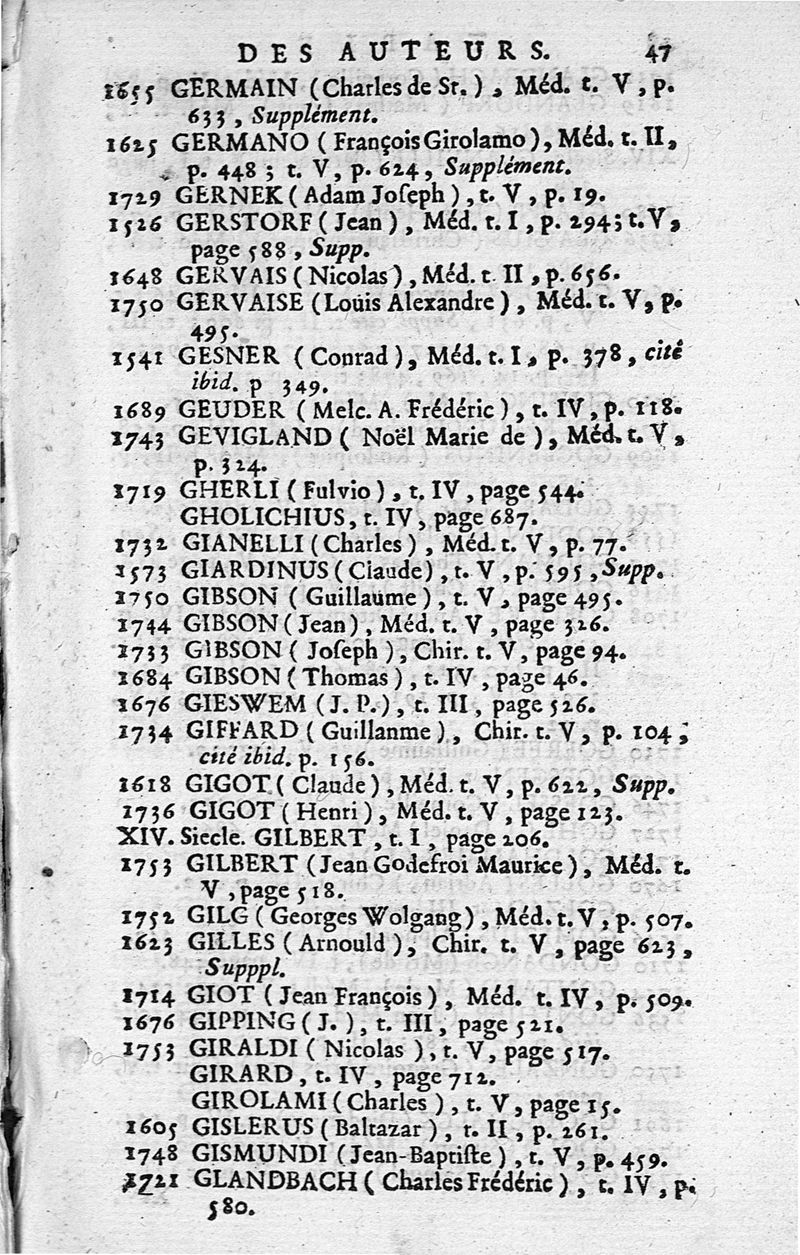 DES AUTEURS. 47
1655 GERMAIN (Charles de St.), Méd. t. V, p.
633, Supplément.
1625 GERMANO (François Girolamo), Méd. t. II,
p. 448; t. V, p. 624, Supplément.
1729 GERNEK (Adam Joseph), t. V, p. 19.
1526 GERSTORF (Jean), Méd. t. I, p. 294; t. V,
page 588, Supp.
1648 GERVAIS (Nicolas), Méd. t II, p. 656.
1750 GERVAISE (Louis Alexandre), Méd. t. V, p.
495.
1541 GESNER (Conrad), Méd. t. I, p. 378, cité
ibid. p 349.
1689 GEUDER (Melc. A. Frédéric), t. IV, p. 118.
1743 GEVIGLAND (Noël Marie de), Méd. t. V,
p. 324.
1719 GHERLI (Fulvio), t. IV, page 544.
GHOLICHIUS, t. IV, page 687.
1732 GIANELLI (Charles), Méd. t. V, p. 77.
1573 GIARDINUS (Claude), t. V, p. 595, Supp.
1750 GIBSON (Guillaume), t. V, page 495.
1744 GIBSON (Jean), Méd. t. V, page 326.
1733 GIBSON (Joseph), Chir. t. V, page 94.
1684 GIBSON (Thomas), t. IV, page 46.
1676 GIESWEM (J. P.), t. III, page 526.
1734 GIFFARD (Guillanme), Chir. t. V, p. 104;
cité ibid. p. 156.
1618 GIGOT (Claude), Méd. t. V, p. 622, Supp.
1736 GIGOT (Henri), Méd. t. V, page 123.
XIV. Siecle. GILBERT, t. I, page 206.
1753 GILBERT (Jean Godefroi Maurice), Méd. t.
V, page 518.
1752 GILG (Georges Wolgang), Méd. t. V, p. 507.
1623 GILLES (Arnould), Chir. t. V, page 623,
Supppl.
1714 GIOT (Jean François), Méd. t. IV, p. 509.
1676 GIPPING (J.), t. III, page 521.
1753 GIRALDI (Nicolas), t. V, page 517.
GIRARD, t. IV, page 712.
GIROLAMI (Charles), t. V, page 15.
1605 GISLERUS (Baltazar), t. II, p. 261.
1748 GISMUNDI (Jean-Baptiste), t. V, p. 459.
1721 GLANDBACH (Charles Frédéric), t. IV, p.
580.